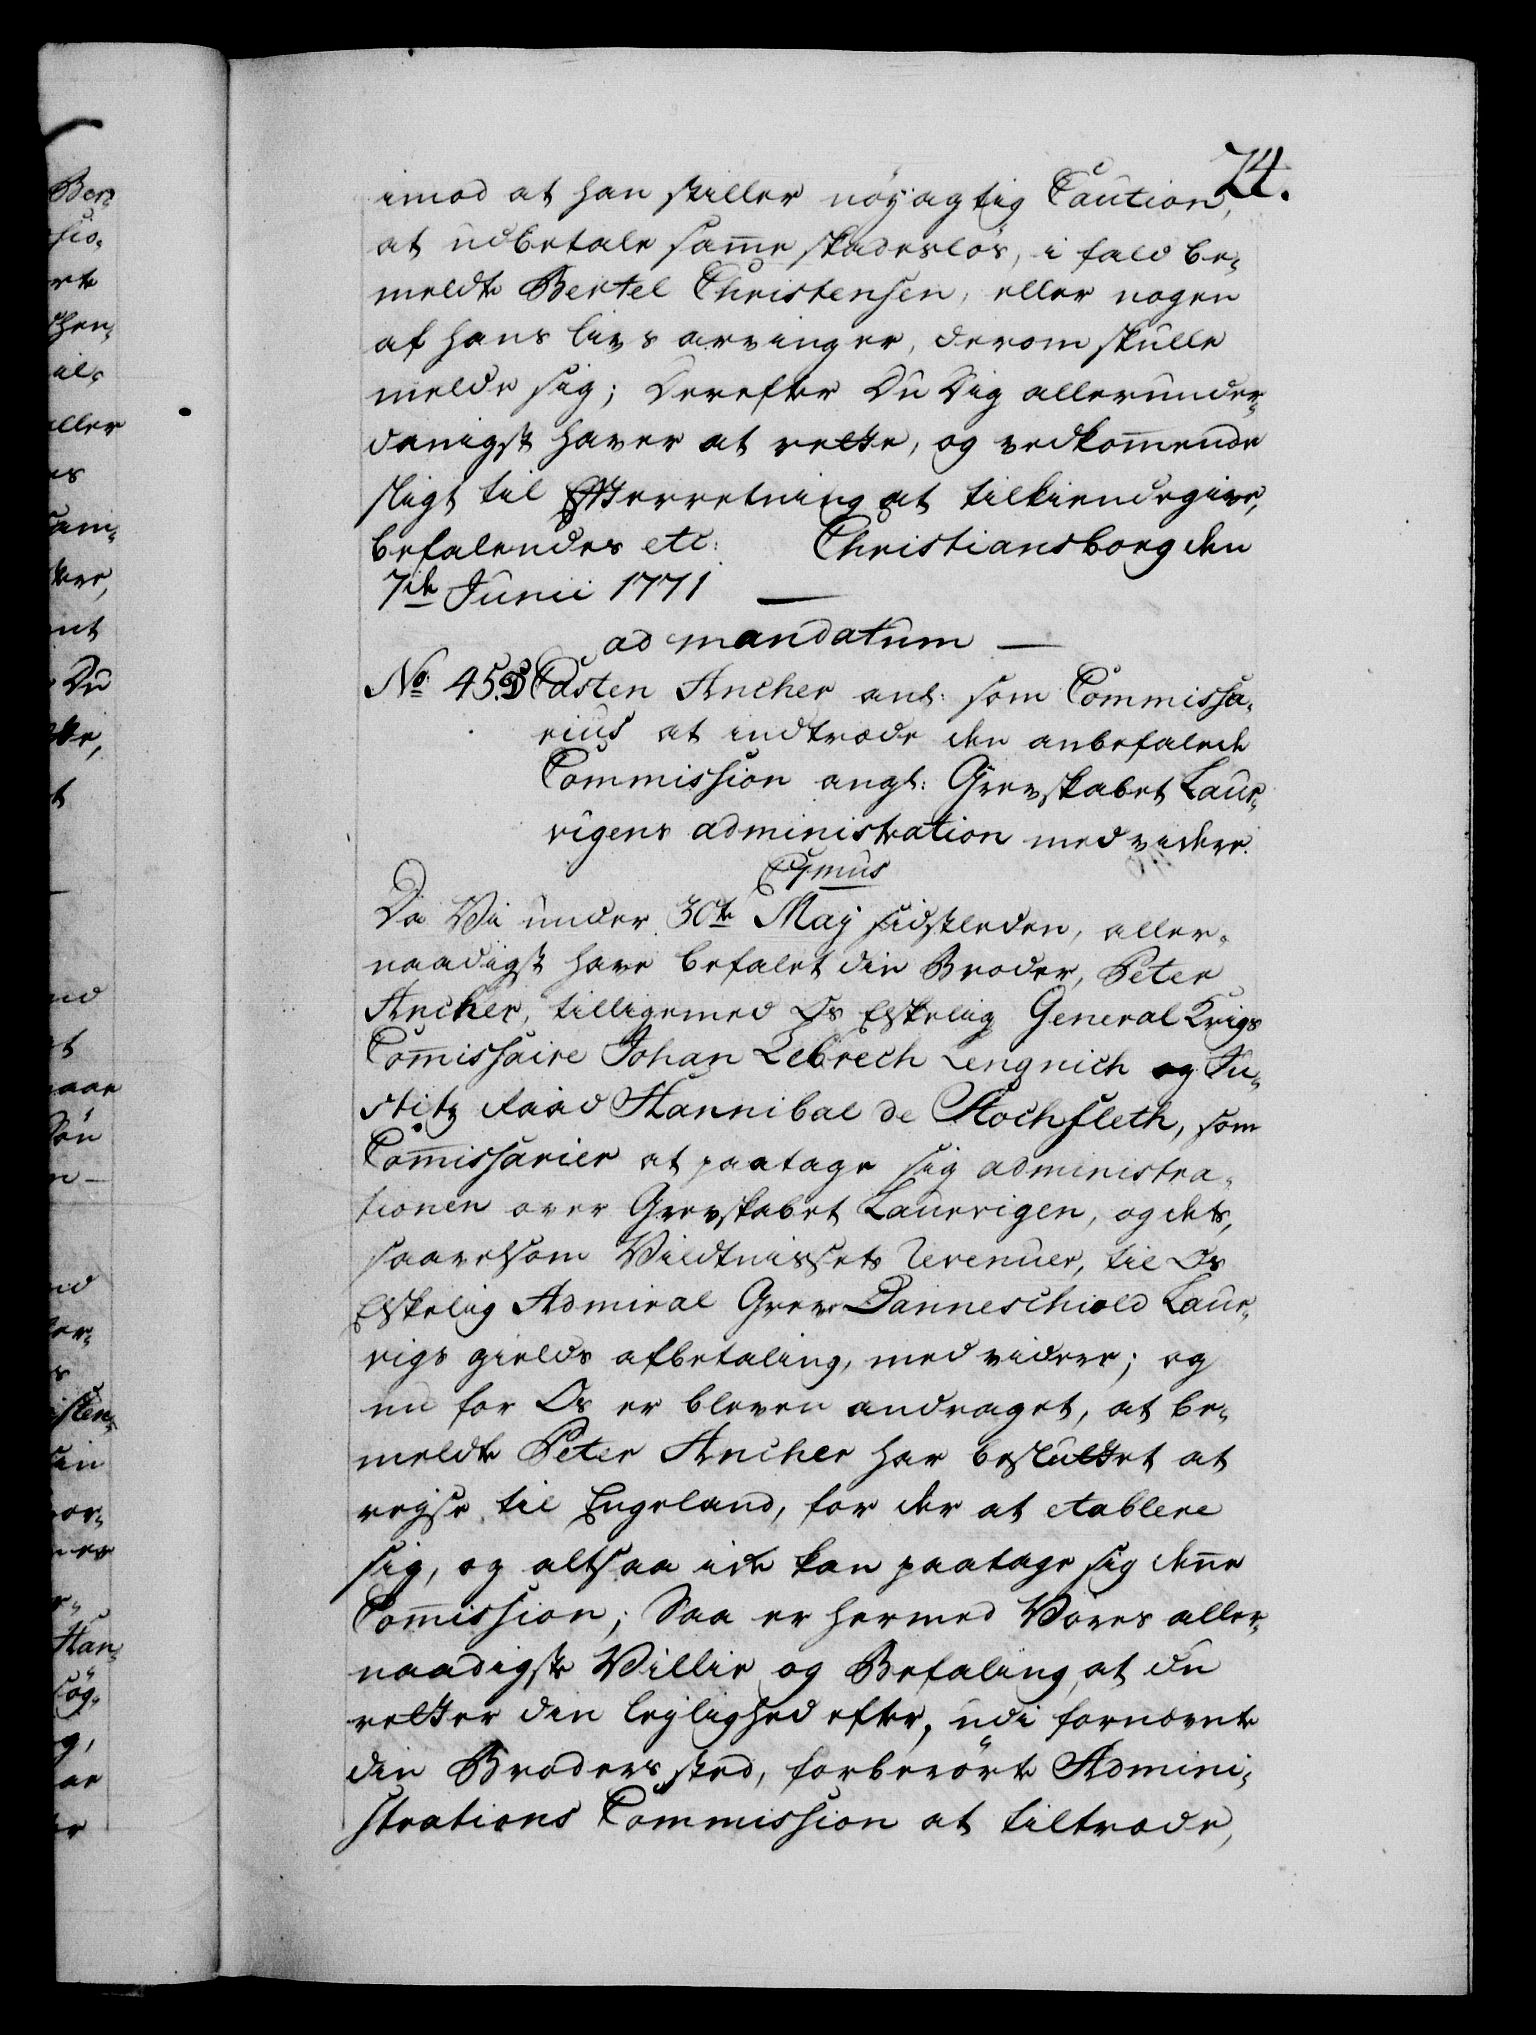 74.
imod at han stiller nöyagtig Caution,
at udbetale sam̄e skadeslös, i fald be-
meldte Bertel Christensen, eller nogen
af hans livs arvinger, derom skulle
melde sig; Derefter Du Dig allerunder-
danigst haver at rette, og vedkom̄ende
sligt til Efterretning at tilkiendegive,
befalendes etc: Christiansborg den
7de Junii 1771 —
ad mandatum —
No: 45. Casten Ancher anl: som Commissa-
rius at indtræde den anbefalede
Commission angl: Grevskabet Laur-
vigens administration med videre.
Da Vi under 30te Maj sidstleden, aller-
naadigst have befalet din Broder, Peter
Ancher, tilligemed Os Elskelig General Krigs
Com̄issaire Johan Lebrech Lengnich og Ju-
stitz Raad Hannibal de Stochfleth, som
Com̄issarier at paatage sig administra-
tionen over Grevskabet Laurvigen, og dets,
saavelsom Vildtnissets Revenuer, til Os
Elskelig Admiral Greve Danneschiold Laur-
vigs gields afbetaling, med videre; og
nu for Os er bleven andraget, at be-
meldte Peter Ancher har besluttet at
reyse til Engeland, for der at etablere
sig, og altsaa icke kan paatage sig den̄e
Com̄ission; Saa er hermed Vores aller-
naadigste Villie og Befaling, at du
retter din lejlighed efter, udi fornævnte
din Broders sted, forberörte Admini-
strations Commission at tiltræde,